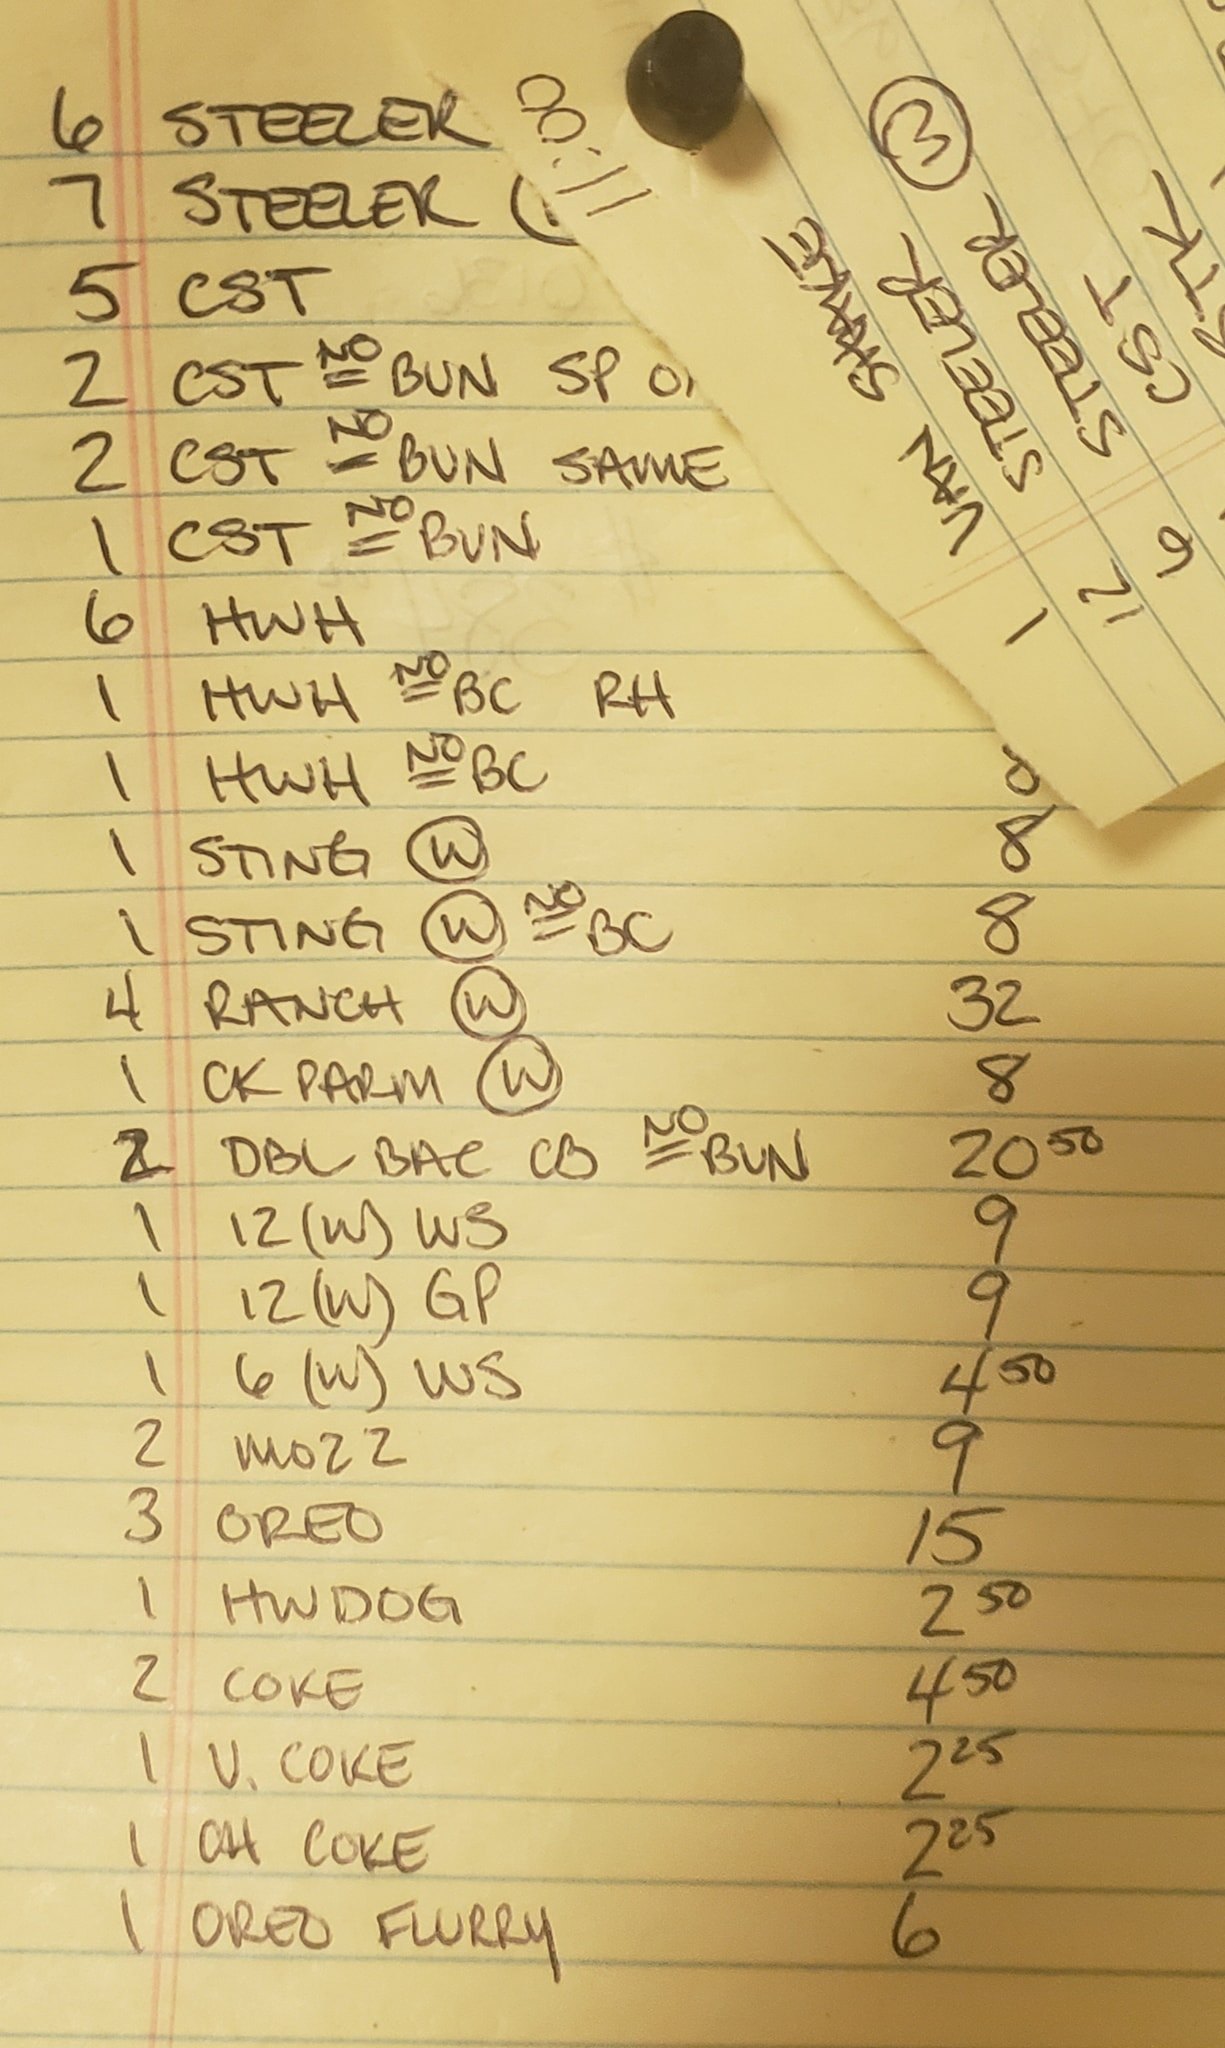 6 STEELER
7 STEELER (
5 CST
2 CST NO BUN SP
2 CST NO BUN SAUCE
1 CST NO BUN
6 HWH
1 HWH NO BC RH
1 HWH NO BC 8
1 STING W 8
1 STING W NO BC 8
4 RANCH W 32
1 CK PARM W 8
2 DBL BAC CB NO BUN 20 50
1 12 (W) WS 9
1 12 (W) GP 9
1 6 (W) WS 4 50
2 MOZZ 9
3 OREO 15
1 HWDOG 2 50
2 COKE 4 50
1 V. COKE 2 25
1 CH COKE 2 25
1 OREO FLURRY 6
11:00
1 VAN SHAKE
12 STEELER
6 STEELER 3
CST